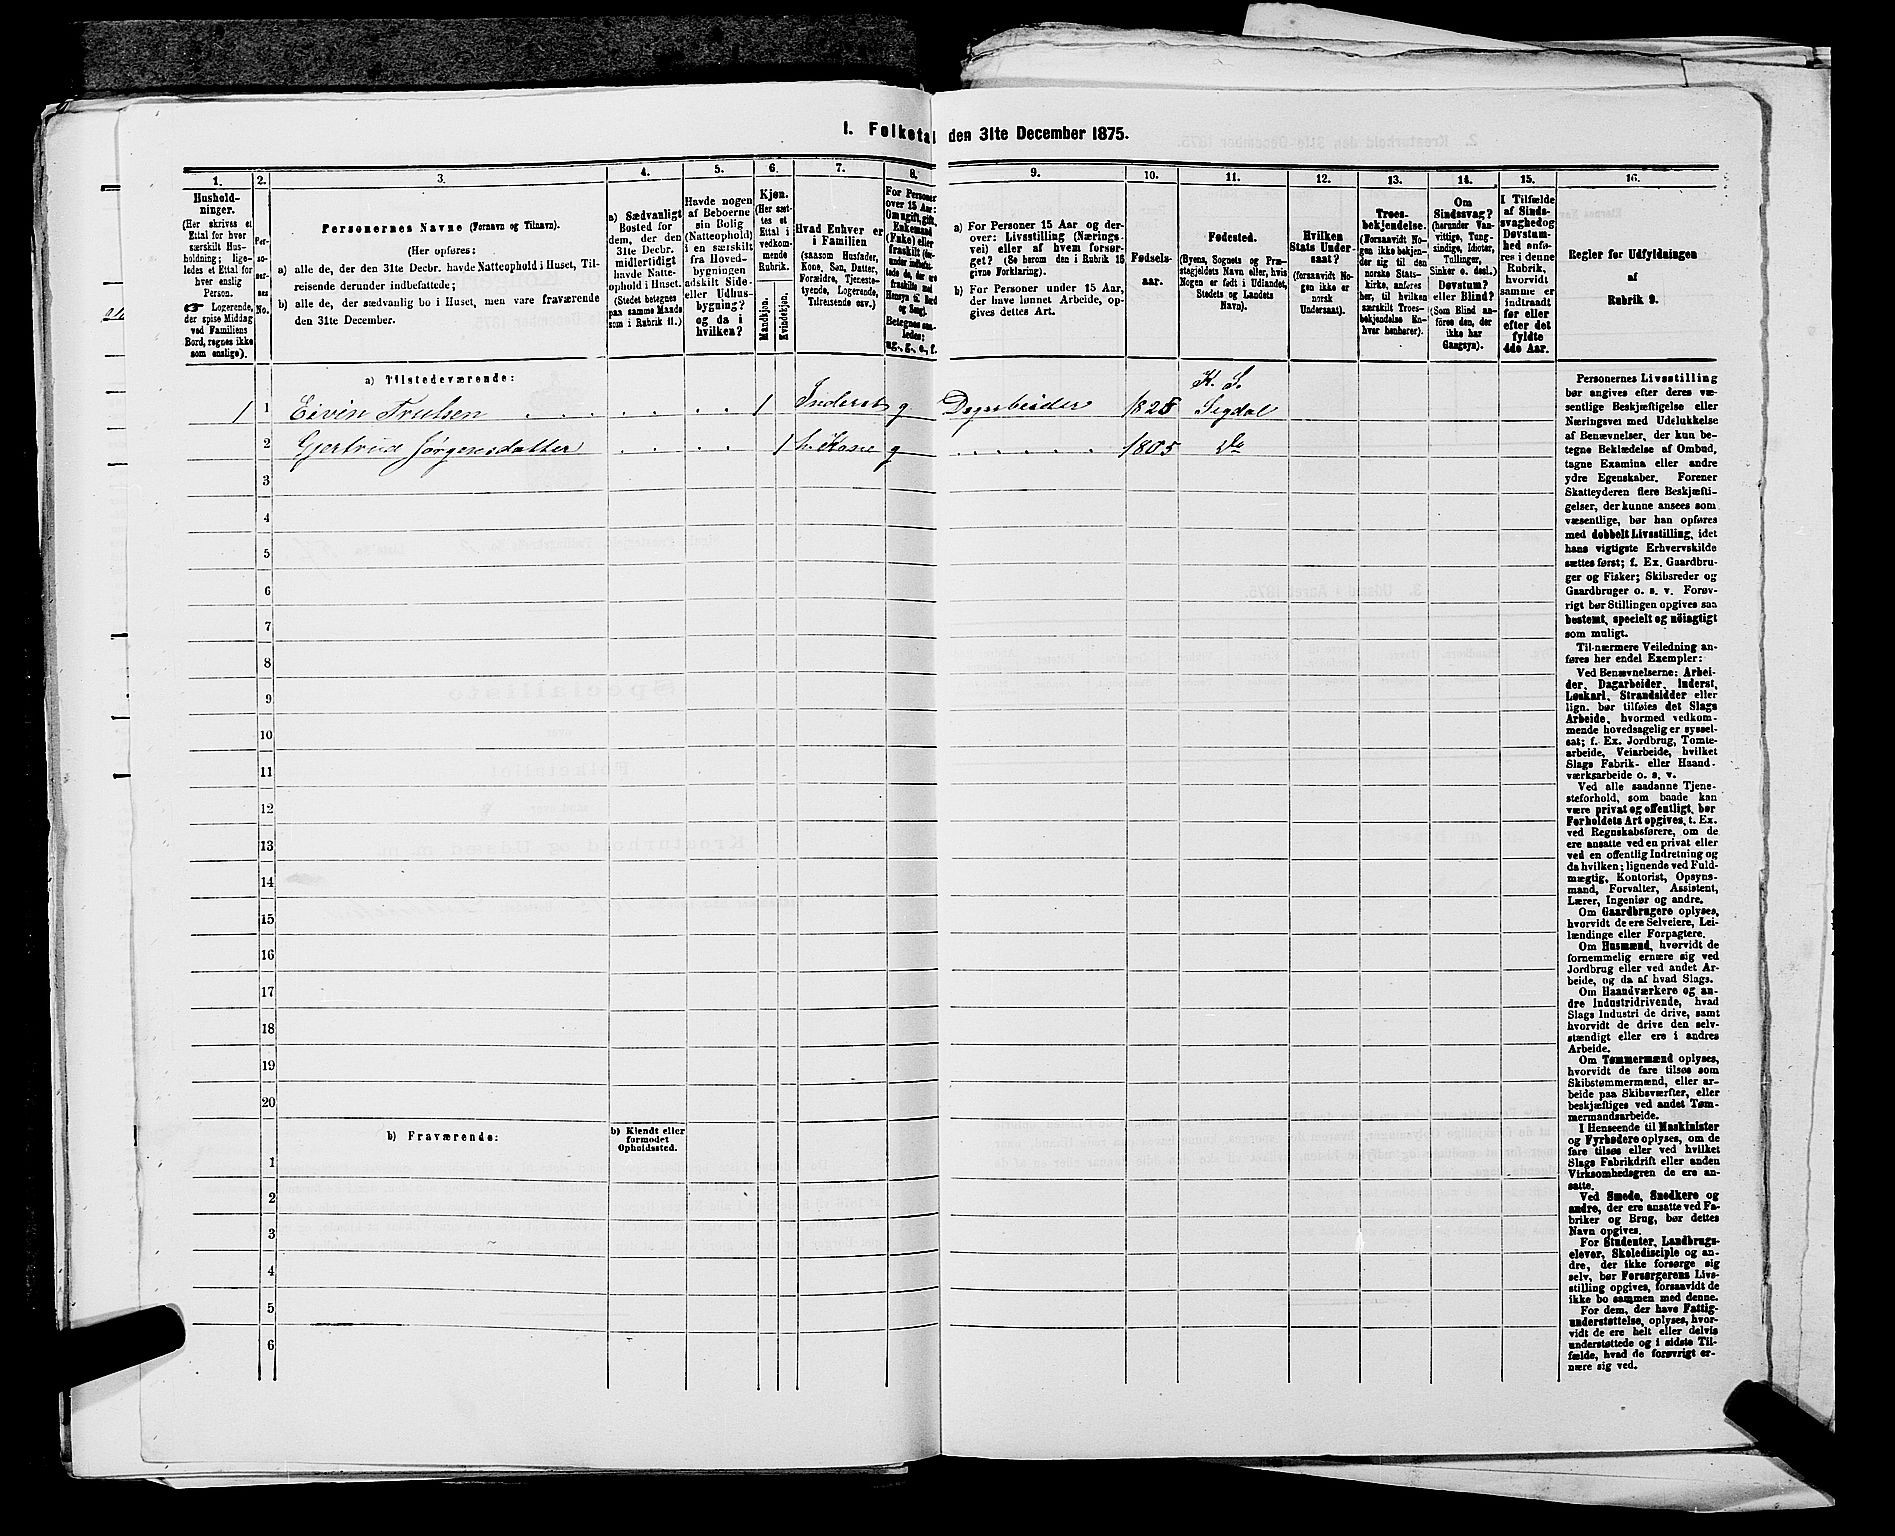 I. Folketal den 31te December 1875.
1.
Hushold-
ninger.
(Her skrives et
Ettal for hver
særskilt Hus-
holdning; lige-
ledes et Ettal for
hver enslig
Person.
☞ Logerende,
der spise Middag
ved Familiens
Bord, regnes ikke
som enslige).
2.
Per-
so-
ner-
nes
No.
3.
Personernes Navne (Fornavn og Tilnavn).
(Her opføres:
a) alle de, der den 31te Decbr. havde Natteophold i Huset, Til-
reisende derunder indbefattede;
b) alle de, der sædvanlig bo i Huset, men vare fraværende
den 31te December.
4.
a) Sædvanligt
Bosted for
dem, der den
31te Decbr.
midlertidigt
havde Natte-
ophold i Huset.
(Stedet betegnes
paa samme Maade
som i Rubrik 11.)
5.
Havde nogen
af Beboerne
sin Bolig
(Natteophold)
i en særskilt
fra Hoved-
bygningen
adskilt Side-
eller Udhus-
bygning?
og da i
hvilken?
6.
Kjøn.
(Her sæt-
tes et
Ettal i
vedkom-
mende
Rubrik.
Mandkjøn.
Kvindekjøn.
7.
Hvad Enhver er
i Familien
(saasom Husfader,
Kone, Søn, Datter,
Forældre, Tjeneste-
tyende, Logerende,
Tilreisende osv.)
8.
For Personer
over 15 Aar:
Om ugift, gift,
Enkemand
(Enke) eller
fraskilt
Betegnes saa-
ledes:
ug., g., e., f.
9.
a) For Personer 15 Aar og der-
over: Livsstilling (Nærings-
vei) eller af hvem forsør-
get? (Se herom den i Rubrik 16
givne Forklaring).
b) For Personer under 15 Aar,
der have lønnet Arbeide, op-
gives dettes Art.
10.
Fødsels-
aar.
11.
Fødested.
(Byens, Sognets og Præ-
stegjeldets Navn eller, hvis
Nogen er født i Udlandet,
Stedets og Landets
Navn).
12.
Hvilken
Stats Under-
saat?
(forsaavidt No-
gen ikke er
norsk
Undersaat).
13.
Troes-
bekjendelse.
(Forsaavidt No-
gen ikke bekjen-
der sig til den
norske Stats-
kirke, anføres
her, til hvilken
særskilt Troes-
bekjendelse En-
hver henhører).
14.
Om
Sindssvag?
(herunder Van-
vittige, Tung-
sindige, Idioter,
Tullinger,
Sinker o. desl.)
Døvstum?
eller Blind?
(Som Blind an-
føres den, der
ikke har
Gangsyn).
15.
I Tilfælde
af Sinds-
svaghed og
Døvstum-
hed anfø-
res i denne
Rubrik,
hvorvidt
samme er
indtraadt
før eller
efter det
fyldte
4de Aar.
16.
Regler for Udfyldningen
af
Rubrik 9.
a) Tilstedeværende:
1 1 Eivin Trulsen 1 Inderst g. Dagarbeider K. S. Sigdal
2 Gjertrud Jørgensdatter 1 h. Kone g 1805 Do
3
4
5
6
7
8
9
10
11
12
13
14
15
16
17
18
19
20
b) Fraværende:
b) Kjendt eller
formodet
Opholdssted.
1
2
3
4
5
6
Personernes Livsstilling
bør angives efter deres væ-
sentlige Beskjæftigelse eller
Næringsvei med Udelukkelse
af Benævnelser, der kun be-
tegne Beklædelse af Ombud,
tagne Examina eller andre
ydre Egenskaber. Forener
Skatteyderen flere Beskjæfti-
gelser, der kunne ansees som
væsentlige, bør han opføres
med dobbelt Livsstilling, idet
hans vigtigste Erhvervskilde
sættes først; f. Ex. Gaardbru-
ger og Fisker; Skibsreder og
Gaardbruger o. s. v. Forøv-
rigt bør Stillingen opgives saa
bestemt, specielt og nøiagtigt
som muligt.
Til nærmere Veiledning an-
føres her endel Exempler:
Ved Benævnelserne: Arbei-
der, Dagarbeider, Inderst,
Løskarl, Strandsidder eller
lign. bør tilføies det Slags
Arbeide, hvormed vedkom-
mende hovedsagelig er syssel-
sat; f. Ex. Jordbrug, Tomte-
arbeide, Veiarbeide, hvilket
Slags Fabrik- eller Haand-
værksarbeide o. s. v.
Ved alle saadanne Tjene-
steforhold, som baade kan
være privat og offentligt, bør
Forholdets Art opgives, t. Ex.
ved Regnskabsførere, om de
ere ansatte ved en privat eller
ved en offentlig Indretning og
da hvilken; lignende ved Fuld-
mægtig, Kontorist, Opsyns-
mand, Forvalter, Assistent,
Lærer, Ingeniør og andre.
Om Gaardbrugere oplyses,
hvorvidt de ere Selveiere, Lei-
lændinge eller Forpagtere.
Om Husmænd, hvorvidt de
fornemmelig ernære sig ved
Jordbrug eller ved andet Ar-
beide, og da af hvad Slags.
Om Haandværkere og an-
dre Industridrivende, hvad
Slags Industri de drive, samt
hvorvidt de drive den selv-
stændigt eller ere i andres
Arbeide.
Om Tømmermænd oplyses,
hvorvidt de fare tilsøs som
Skibstømmermænd, eller ar-
beide paa Skibsværfter, eller
beskjæftiges ved andet Tøm-
mermandsarbeide.
I Henseende til Maskinister
og Fyrbødere oplyses, om de
fare tilsøs eller ved hvilket
Slags Fabrikdrift eller anden
Virksomhedsgren de ere an-
satte.
Ved Smede, Snedkere og
andre, der ere ansatte ved Fa-
briker og Brug, bør dettes
Navn opgives.
For Studenter, Landbrugs-
elever, Skoledisciple og an-
dre, der ikke forsørge sig
selv, bør Forsørgerens Livs-
stilling opgives, forsaavidt de
ikke bo sammen med denne.
For dem, der have Fattig-
understøttelse, oplyses, hvor-
vidt de ere helt eller delvis
understøttede og i sidste Til-
fælde, hvad de forøvrigt er-
nære sig ved.